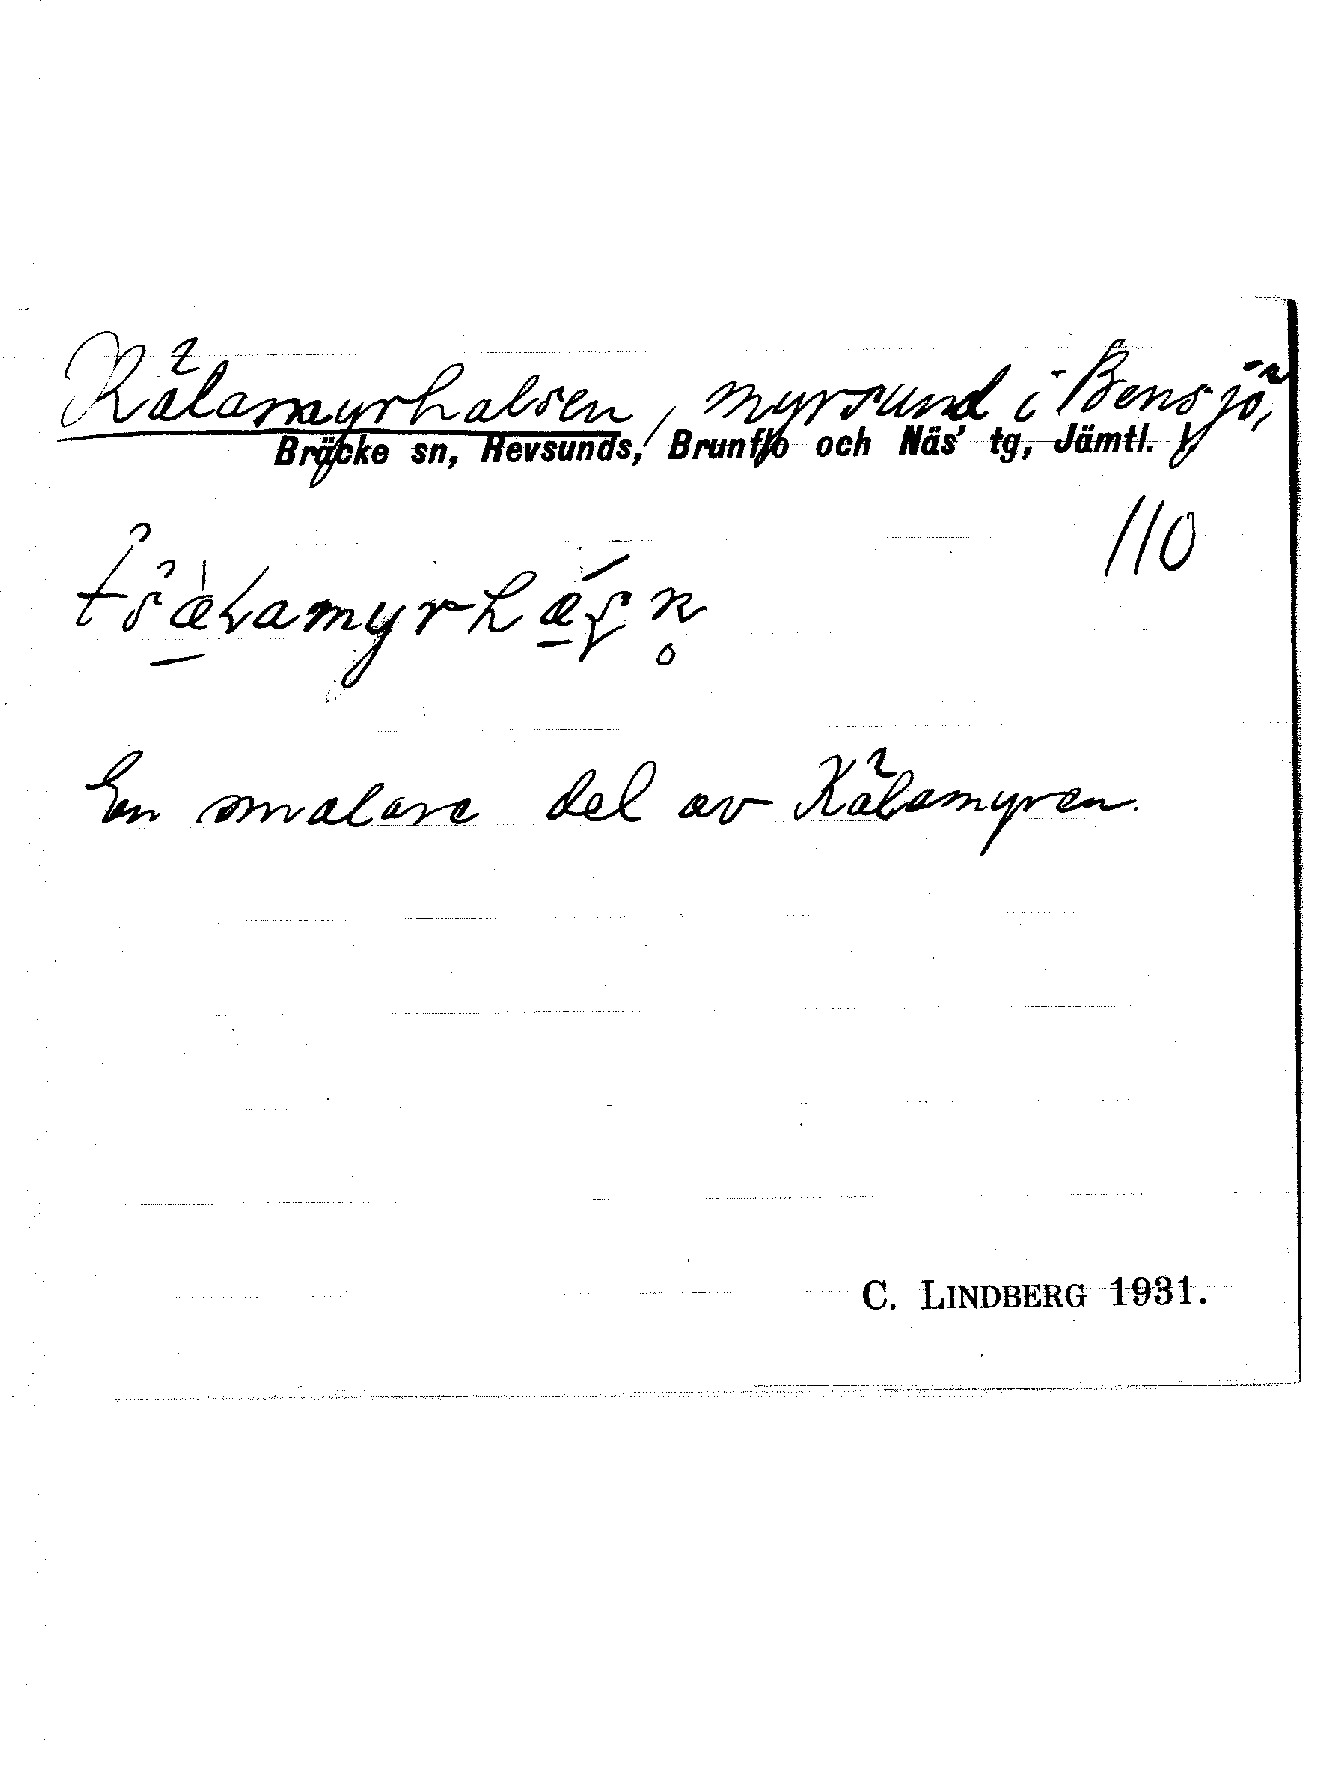 Kälamyrhalsen, myrsund i Bensjö,
Bräcke sn, Revsunds, Brunflo och Näs' tg, Jämtl.
110
En smalare del av Kälamyren.
C. LINDBERG 1931.